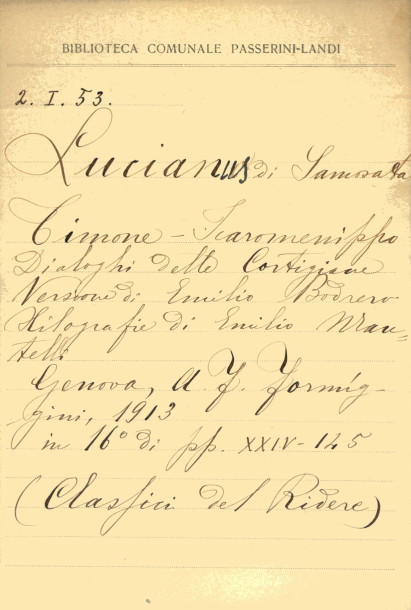 BIBLIOTECA COMUNALE PASSERINI-LANDI
2. I. 53.
Lucianus di Samosata
Timone - Icaromenippo
Dialoghi delle Cortigiane
Versione di Emilio Bodrero
Xilografie di Emilio Man-
telli
Genova, A. F. Formíg-
gini, 1913
in 16° di pp. XXIV-145
(Classici del Ridere)